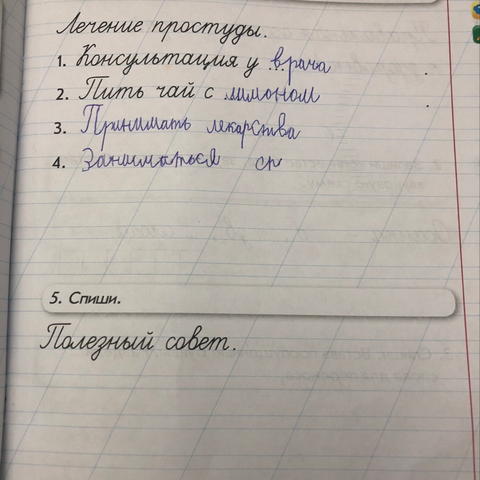 Лечение простуды.
1. Консультация у врача
2. Пить чай с лимоном
3. Принимать лекарства
4. Заниматься сп
5. Спиши.
Полезный совет.